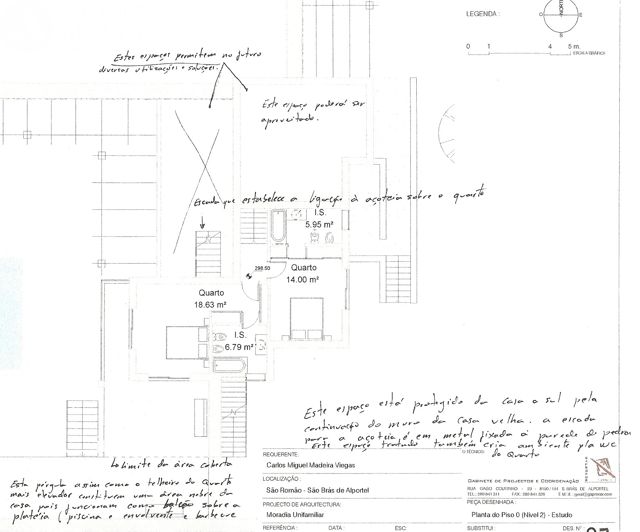 LEGENDA :
NORTE
S
0 1 4 5 m.
ESCALA GRÁFICA
Estes espaços permitem no futuro
diversas utilizações e soluções.
Este espaço poderá ser
aproveitado.
Escada que estabelece a ligação à açoteia sobre o quarto
I.S.
5.95 m²
298.50
Quarto
14.00 m²
Quarto
18.63 m²
I.S.
6.79 m²
Este espaço está protegido da casa a sul pela
continuação do muro da casa velha. a escada
para a açoteia é em metal fixada à parede de pedra
Este espaço tratado também cria ambiente pla WC
do Quarto
limite da área coberta
Esta pérgula assim como o telheiro do Quarto
mais elevados constituem uma área nobre da
casa pois funcionam como balcão sobre a
plateia (piscina e envolvente e barbecue
REQUERENTE:
Carlos Miguel Madeira Viegas
LOCALIZAÇÃO :
São Romão - São Brás de Alportel
PROJECTO DE ARQUITECTURA:
Moradia Unifamiliar
REFERÊNCIA : DATA ESC:
O TÉCNICO:
GABINETE DE PROJECTOS E COORDENAÇÃO
PEÇA DESENHADA :
Planta do Piso 0 (Nível 2) - Estudo
SUBSTITUI DES. Nº